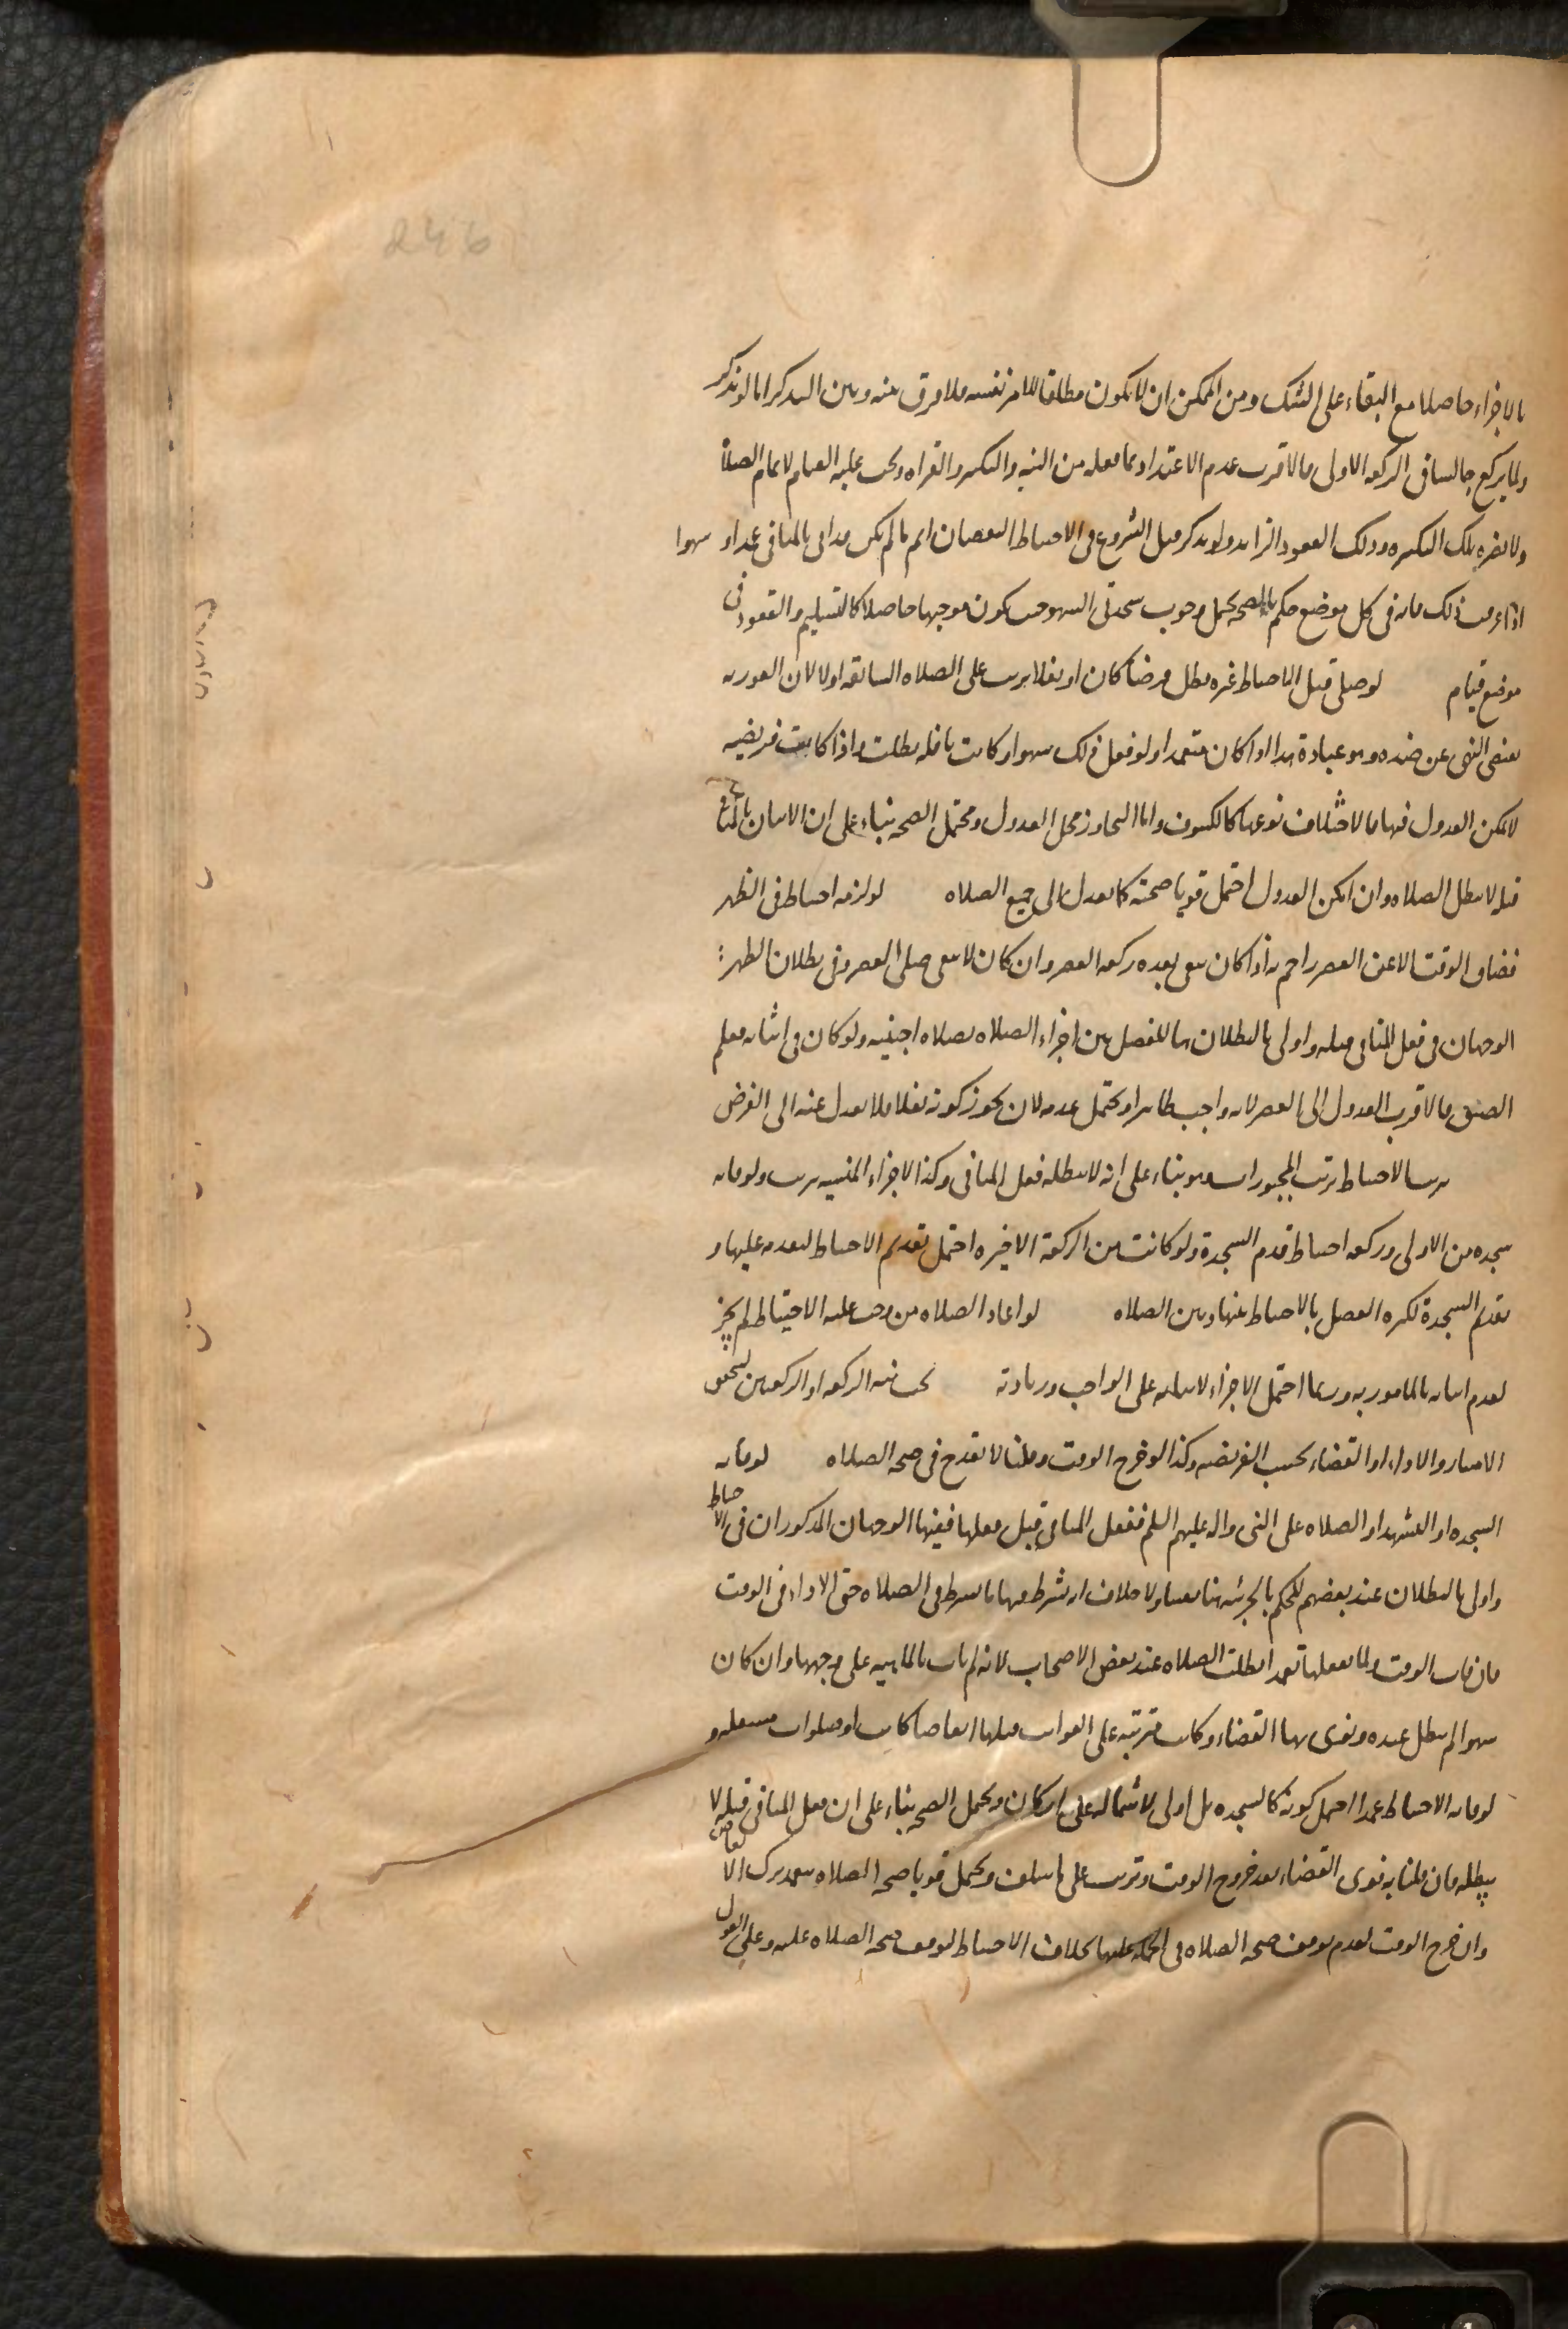 246
بالاجزاء حاصلا مع البقاء على الشك ومن الممكن ان لا يكون مطلقا للامر نفسه فلا فرق بينه وبين التذكر اما لو تذكر
ولما يركع جالسا في الركعه الاولى فالاقرب عدم الاعتداد بما فعله من النيه والتكبير والقراه ويجب عليه القيام لاتمام الصلاة
ولا يضره تلك التكبيره وذلك القعود الزايد ولو تذكر قبل الشروع في الاحتياط النقصان اتم ما لم يكن قد اتى بالمنافي عمدا و سهوا
اذا عرفت ذلك فانه في كل موضع حكم بالصحه يحتمل وجوب سجدتي السهو حيث يكون موجبها حاصلا كالتسليم والقعود في
موضع قيام لو صلى قبل الاحتياط غيره بطل فرضا كان او نفلا ترتب على الصلاه السابقه او لا لان الفوريه
تقتضي النهي عن ضده وهو عبادة هذا اذا كان متعمدا ولو فعل ذلك سهوا وكانت نافله بطلت واذا كانت فريضه
لا يمكن العدول فيها اما لاختلاف نوعها كالكسوف واما التجاوز محل العدول ومحتمل الصحه بناء على ان الاتيان بالمنافي
قبله لا يبطل الصلاه وان امكن العدول احتمل قويا صحته كما يعدل الى جميع الصلاه لو لزمه احتياط في الظهر
فضاق الوقت الا عن العصر زاحم به اذا كان يبقى بعده ركعه العصر وان كان لا يبقى صلى العصر وفي بطلان الظهر :
الوجهان في فعل المنافي قبله واولى بالبطلان هنا للفصل بين اجزاء الصلاه بصلاه اجنبيه ولو كان في اثنائه فعلم
الضيق فالاقرب العدول الى العصر لانه واجب ظاهرا ويحتمل عدمه لان يجوز كونه نفلا فلا يعدل عنه الى الفرض
ترتب الاحتياط ترتب المجبورات وهو بناء على انه لا يبطله فعل المنافي وكذا الاجزاء المنسيه ترتب ولو فاته
سجده من الاولى وركعه احتياط قدم السجدة ولو كانت من الركعة الاخيره احتمل تقديم الاحتياط لتقدمه عليها و
تقديم السجدة لكثره الفصل بالاحتياط بينها وبين الصلاه لو اعاد الصلاه من وجب عليه الاحتياط لم يجز
لعدم اتيانه بالمامور به وربما احتمل الاجزاء لاتيانه على الواجب وزيادته يجب نيه الركعه او الركعتين ليتحقق
الامتياز والاداء او القضاء بحسب الفريضه وكذا لو خرج الوقت وقلنا لا يقدح في صحه الصلاه لو فاته
السجده او التشهد او الصلاه على النبي واله عليهم السلم ففعل المنافي قبل فعلها ففيها الوجهان المذكوران في الاحتياط
واولى بالبطلان عند بعضهم للحكم بالجزئيه هنا يقينا ولا خلاف انه يشترط فيها ما يشترط في الصلاه حتى الاداء في الوقت
فان فات الوقت ولما يفعلها تعمدا بطلت الصلاه عند بعض الاصحاب لانه لم يات بالماهيه على وجهها وان كان
سهوا لم يبطل عنده ونوى بها القضاء وكانت مترتبه على الفوايت قبلها ابعاضا كانت او صلوات مستقله و
لو فاته الاحتياط عمدا احتمل كونه كالسجده بل اولى لاشتماله على اركان ويحتمل الصحه بناء على ان فعل المنافي قبله لا
يبطله فان قلنا به نوى القضاء بعد خروج الوقت وترتب على ما سلف ويحتمل قويا صحه الصلاه بتعمد ترك الابعاض
وان خرج الوقت لعدم توقف صحه الصلاه في الجمله عليها بخلاف الاحتياط لتوقف صحه الصلاه عليه وعلى القول